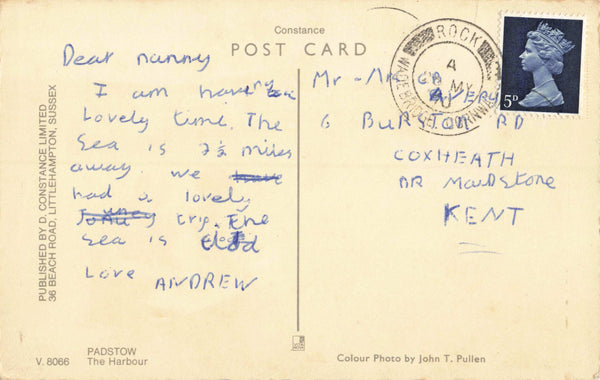 Constance
POST CARD
Dear nanny
I am having a
Lovely time. The
sea is 7½ miles
away. we
had a lovely
trip. The
sea is
Love ANDREW
Mr - Mrs
AVERY
6 BURSTON RD
COXHEATH
NR MaiDStone
KENT
ROCK
4
MY
WADEBRIDGE, CORNWALL
5D
PUBLISHED BY D. CONSTANCE LIMITED
36 BEACH ROAD, LITTLEHAMPTON, SUSSEX
PADSTOW
V. 8066 The Harbour
Colour Photo by John T. Pullen